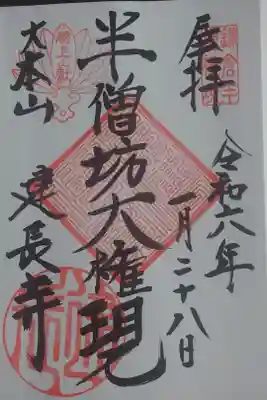 奉拝
令和六年
一月二十八日
半僧坊大権現
大本山
建長寺